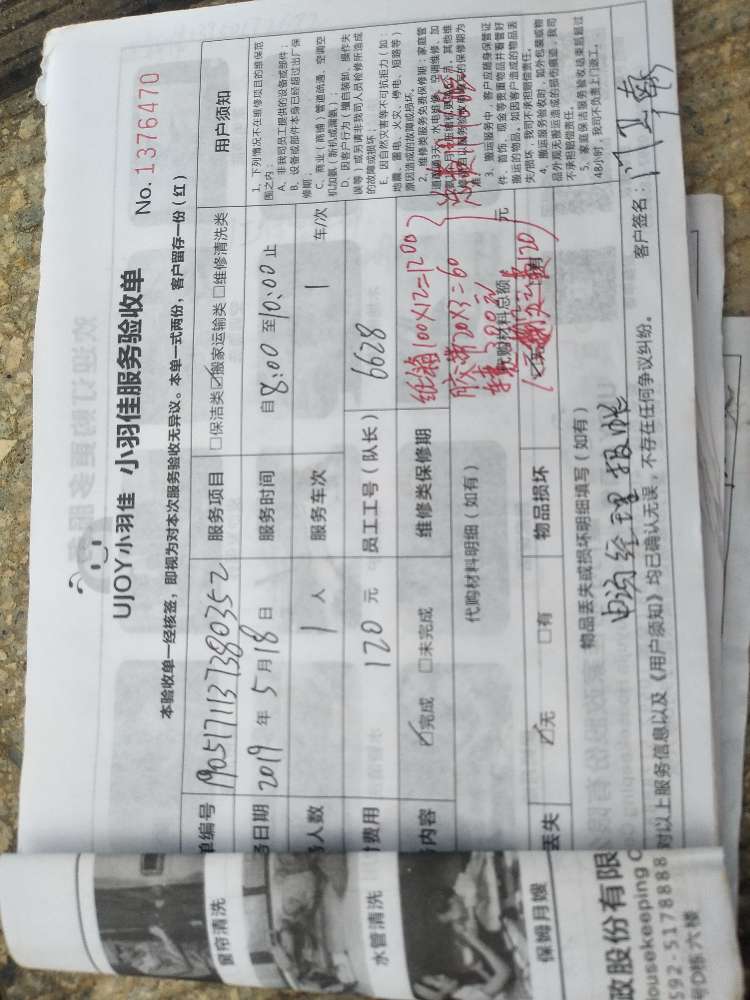 UJOY小羽佳 小羽佳服务验收单
No. 1376470
本验收单一经核签，即视为对本次服务验收无异议。本单一式两份，客户留存一份（红）
单编号 190517113738035 2 服务项目 □保洁类 ☑搬家运输类 □维修清洗类
务日期 2019 年 5 月 18 日 服务时间 自 8:00 至 10:00 止
人数 1 人 服务车次 1 车/次
费用 120 元 员工工号（队长） 6628
内容 ☑完成 □未完成 维修类保修期
纸箱100X12=1200
胶带20X3=60
代购材料明细（如有）
代购材料总额 元
丢失 ☑无 □有 物品损坏 ☑无
物品丢失或损坏明细填写（如有）
申请经理报帐
对以上服务信息以及《用户须知》均已确认无误，不存在任何争议纠纷。 客户签名：
用户须知
1. 下列情况不在维修项目的维保范
围之内：
A. 非我司员工提供的设备或部件；
B. 设备或部件本身已经超过出厂保
修期；
C. 商业（商铺）管道疏通、空调空
机加氨（新机或漏氨）；
D. 因客户行为（擅自装卸、操作失
误等）或另请非我司人员检修所造成
的故障或损坏；
E. 因自然灾害等不可抗拒力（如：
地震、雷电、火灾、停电、短路等）
原因造成的故障或损坏。
2. 维修类服务免费保修期：家庭管
3. 搬运服务中，客户应随身保管证
件、首饰、现金等贵重物品并看管好
搬运的物品，如因客户造成的物品丢
失/损坏，我司不承担赔偿责任。
4. 搬运服务验收时，如外包装或物
品外观无搬运造成的损伤痕迹，我司
不承担赔偿责任。
5. 家庭保洁服务验收结束后超过
48小时，我司不负责上门返工。
窗帘清洗
水管清洗
保姆月嫂
政股份有限
ousekeeping
592-5178888
号D栋六楼